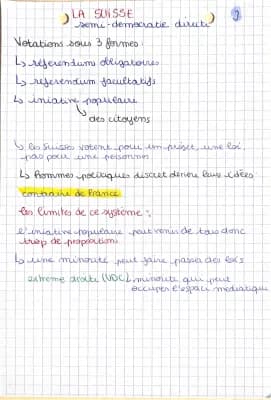 LA SUISSE
semi-démocratie directe
Votations sous 3 formes :
↳ référendum obligatoires
↳ référendum facultatifs
↳ iniative populaire
↳ des citoyens
↳ les Suisses votent pour un projet, une loi,
pas pour une personne
↳ Hommes politiques discret derrière leurs idées
contraire de France
les limites de ce système :
l'iniative populaire peut venir de tous donc
trop de proposition
↳ une minorité peut faire passer des lois
extrême droite (UDC) minorité qui peut
occuper l'espace médiatique